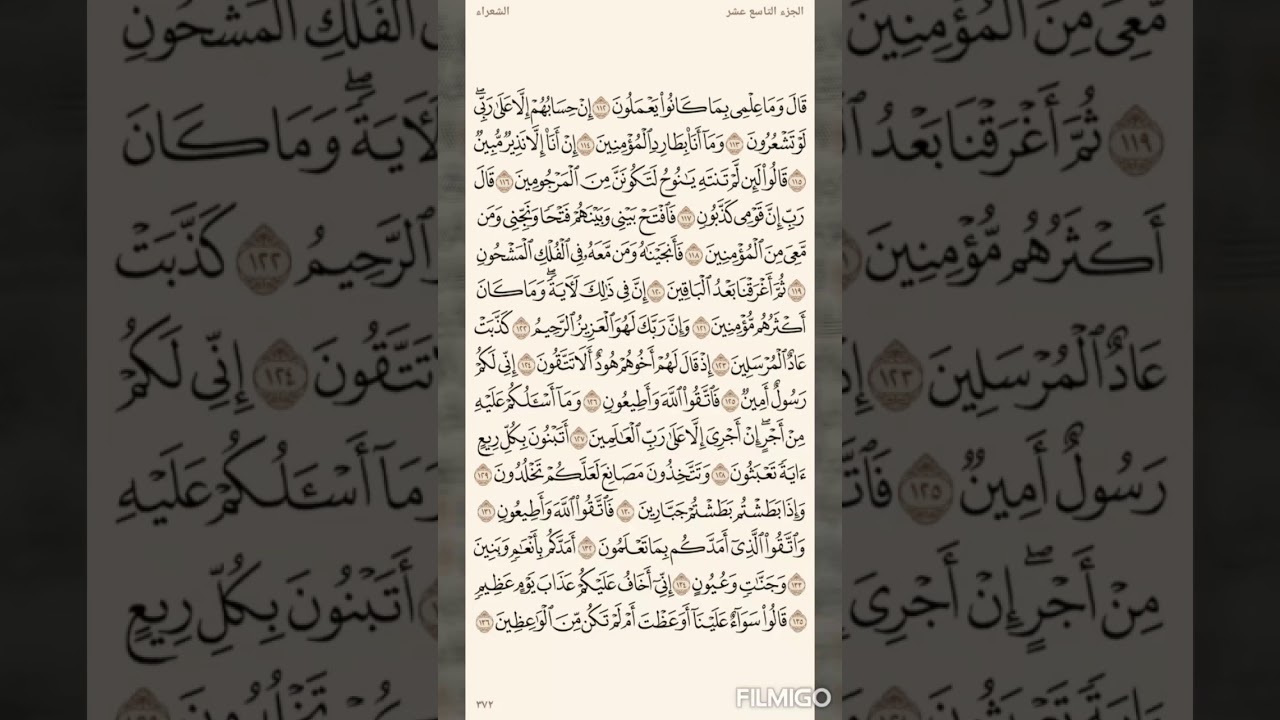 الجزء التاسع عشر
الشعراء
قَالَ وَمَا عِلْمِى بِمَا كَانُوا۟ يَعْمَلُونَ ١١٢ إِنْ حِسَابُهُمْ إِلَّا عَلَىٰ رَبِّىۖ
لَوْ تَشْعُرُونَ ١١٣ وَمَآ أَنَا۠ بِطَارِدِ ٱلْمُؤْمِنِينَ ١١٤ إِنْ أَنَا۠ إِلَّا نَذِيرٌ مُّبِينٌ
١١٥ قَالُوا۟ لَئِن لَّمْ تَنتَهِ يَـٰنُوحُ لَتَكُونَنَّ مِنَ ٱلْمَرْجُومِينَ ١١٦ قَالَ
رَبِّ إِنَّ قَوْمِى كَذَّبُونِ ١١٧ فَٱفْتَحْ بَيْنِى وَبَيْنَهُمْ فَتْحًا وَنَجِّنِى وَمَن
مَّعِىَ مِنَ ٱلْمُؤْمِنِينَ ١١٨ فَأَنجَيْنَـٰهُ وَمَن مَّعَهُۥ فِى ٱلْفُلْكِ ٱلْمَشْحُونِ
١١٩ ثُمَّ أَغْرَقْنَا بَعْدُ ٱلْبَاقِينَ ١٢٠ إِنَّ فِى ذَٰلِكَ لَـَٔايَةًۖ وَمَا كَانَ
أَكْثَرُهُم مُّؤْمِنِينَ ١٢١ وَإِنَّ رَبَّكَ لَهُوَ ٱلْعَزِيزُ ٱلرَّحِيمُ ١٢٢ كَذَّبَتْ
عَادٌ ٱلْمُرْسَلِينَ ١٢٣ إِذْ قَالَ لَهُمْ أَخُوهُمْ هُودٌ أَلَا تَتَّقُونَ ١٢٤ إِنِّى لَكُمْ
رَسُولٌ أَمِينٌ ١٢٥ فَٱتَّقُوا۟ ٱللَّهَ وَأَطِيعُونِ ١٢٦ وَمَآ أَسْـَٔلُكُمْ عَلَيْهِ
مِنْ أَجْرٍۖ إِنْ أَجْرِىَ إِلَّا عَلَىٰ رَبِّ ٱلْعَـٰلَمِينَ ١٢٧ أَتَبْنُونَ بِكُلِّ رِيعٍ
ءَايَةً تَعْبَثُونَ ١٢٨ وَتَتَّخِذُونَ مَصَانِعَ لَعَلَّكُمْ تَخْلُدُونَ ١٢٩
وَإِذَا بَطَشْتُم بَطَشْتُمْ جَبَّارِينَ ١٣٠ فَٱتَّقُوا۟ ٱللَّهَ وَأَطِيعُونِ ١٣١
وَٱتَّقُوا۟ ٱلَّذِىٓ أَمَدَّكُم بِمَا تَعْلَمُونَ ١٣٢ أَمَدَّكُم بِأَنْعَـٰمٍ وَبَنِينَ
١٣٣ وَجَنَّـٰتٍ وَعُيُونٍ ١٣٤ إِنِّىٓ أَخَافُ عَلَيْكُمْ عَذَابَ يَوْمٍ عَظِيمٍ
١٣٥ قَالُوا۟ سَوَآءٌ عَلَيْنَآ أَوَعَظْتَ أَمْ لَمْ تَكُن مِّنَ ٱلْوَٰعِظِينَ ١٣٦
٣٧٢
FILMIGO